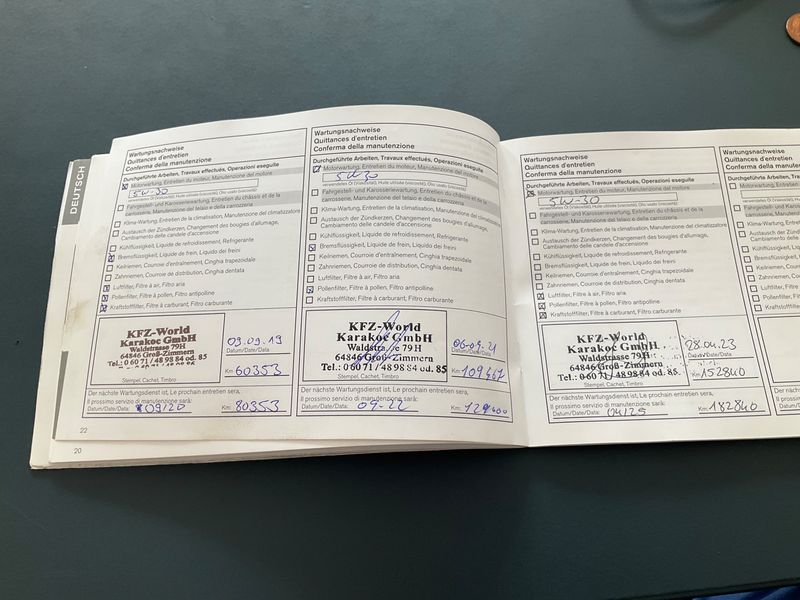 DEUTSCH
Wartungsnachweise
Quittances d'entretien
Conferma della manutenzione
Durchgeführte Arbeiten, Travaux effectués, Operazioni eseguite
Motorwartung, Entretien du moteur, Manutenzione del motore
5W-30
verwendetes Öl (Viskosität), Huile utilisée (viscosité), Olio usato (viscosità)
Fahrgestell- und Karosseriewartung, Entretien du châssis et de la
carrosserie, Manutenzione del telaio e della carrozzeria
Klima-Wartung, Entretien de la climatisation, Manutenzione del climatizzatore
Austausch der Zündkerzen, Changement des bougies d'allumage,
Cambiamento delle candele d'accensione
Kühlflüssigkeit, Liquide de refroidissement, Refrigerante
Bremsflüssigkeit, Liquide de frein, Liquido dei freni
Keilriemen, Courroie d'entraînement, Cinghia trapezoidale
Zahnriemen, Courroie de distribution, Cinghia dentata
Luftfilter, Filtre à air, Filtro aria
Pollenfilter, Filtre à pollen, Filtro antipolline
Kraftstofffilter, Filtre à carburant, Filtro carburante
KFZ-World
Karakoc GmbH
Waldstrasse 79H
64846 Groß-Zimmern
Tel.: 0 60 71 / 48 98 84 od. 85
03.09.19
Datum/Date/Data
Km: 60353
Stempel, Cachet, Timbro
Der nächste Wartungsdienst ist, Le prochain entretien sera,
Il prossimo servizio di manutenzione sarà:
Datum/Date/Data: 09/20 Km: 80353
22
20
Wartungsnachweise
Quittances d'entretien
Conferma della manutenzione
Durchgeführte Arbeiten, Travaux effectués, Operazioni eseguite
Motorwartung, Entretien du moteur, Manutenzione del motore
5W30
verwendetes Öl (Viskosität), Huile utilisée (viscosité), Olio usato (viscosità)
Fahrgestell- und Karosseriewartung, Entretien du châssis et de la
carrosserie, Manutenzione del telaio e della carrozzeria
Klima-Wartung, Entretien de la climatisation, Manutenzione del climatizzatore
Austausch der Zündkerzen, Changement des bougies d'allumage,
Cambiamento delle candele d'accensione
Kühlflüssigkeit, Liquide de refroidissement, Refrigerante
Bremsflüssigkeit, Liquide de frein, Liquido dei freni
Keilriemen, Courroie d'entraînement, Cinghia trapezoidale
Zahnriemen, Courroie de distribution, Cinghia dentata
Luftfilter, Filtre à air, Filtro aria
Pollenfilter, Filtre à pollen, Filtro antipolline
Kraftstofffilter, Filtre à carburant, Filtro carburante
KFZ-World
Karakoc GmbH
Waldstraße 79H
64846 Groß-Zimmern
Tel.: 0 60 71 / 48 98 84 od. 85
06-09.21
Datum/Date/Data
Km:
Stempel, Cachet, Timbro
Der nächste Wartungsdienst ist, Le prochain entretien sera,
Il prossimo servizio di manutenzione sarà:
Datum/Date/Data: 09-22 Km:
Wartungsnachweise
Quittances d'entretien
Conferma della manutenzione
Durchgeführte Arbeiten, Travaux effectués, Operazioni eseguite
Motorwartung, Entretien du moteur, Manutenzione del motore
5W-30
verwendetes Öl (Viskosität), Huile utilisée (viscosité), Olio usato (viscosità)
Fahrgestell- und Karosseriewartung, Entretien du châssis et de la
carrosserie, Manutenzione del telaio e della carrozzeria
Klima-Wartung, Entretien de la climatisation, Manutenzione del climatizzatore
Austausch der Zündkerzen, Changement des bougies d'allumage,
Cambiamento delle candele d'accensione
Kühlflüssigkeit, Liquide de refroidissement, Refrigerante
Bremsflüssigkeit, Liquide de frein, Liquido dei freni
Keilriemen, Courroie d'entraînement, Cinghia trapezoidale
Zahnriemen, Courroie de distribution, Cinghia dentata
Luftfilter, Filtre à air, Filtro aria
Pollenfilter, Filtre à pollen, Filtro antipolline
Kraftstofffilter, Filtre à carburant, Filtro carburante
KFZ-World
Karakoc GmbH
Waldstrasse 79H
64846 Groß-Zimmern
Tel.: 0 60 71 / 48 98 84 od. 85
28.04.23
Datum/Date/Data
Km: 152840
Stempel, Cachet, Timbro
Der nächste Wartungsdienst ist, Le prochain entretien sera,
Il prossimo servizio di manutenzione sarà:
Datum/Date/Data: 04/25 Km: 182840
Wartungsnachweise
Quittances d'entretien
Conferma della manutenzione
Durchgeführte Arbeiten
Motorwartung
verwendetes Öl
Fahrgestell- und
carrosserie,
Klima-Wartung
Austausch der
Cambiamento
Kühlflüssigkeit
Bremsflüssigkeit
Keilriemen
Zahnriemen
Luftfilter
Pollenfilter
Kraftstofffilter
Der nächste
Il prossimo
Datum/Date